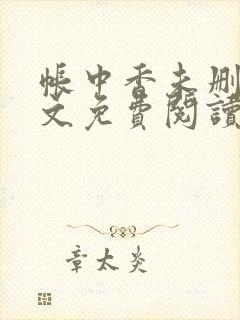 帳中香未删
文免費閱讀
章太炎